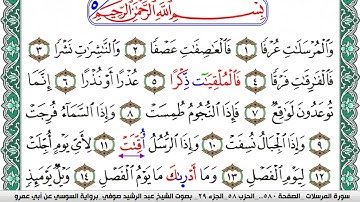 بِسْمِ اللَّهِ الرَّحْمَٰنِ الرَّحِيمِ
وَالْمُرْسَلَاتِ عُرْفًا ١ فَالْعَاصِفَاتِ عَصْفًا ٢ وَالنَّاشِرَاتِ نَشْرًا ٣
فَالْفَارِقَاتِ فَرْقًا ٤ فَالْمُلْقِيَات ذِّكْرًا ٥ عُذْرًا أَوْ نُذْرًا ٦ إِنَّمَا
تُوعَدُونَ لَوَاقِعٌ ٧ فَإِذَا النُّجُومُ طُمِسَتْ ٨ وَإِذَا السَّمَاءُ فُرِجَتْ
٩ وَإِذَا الْجِبَالُ نُسِفَتْ ١٠ وَإِذَا الرُّسُلُ وُقِّتَتْ ١١ لِأَيِّ يَوْمٍ أُجِّلَتْ
١٢ لِيَوْمِ الْفَصْلِ ١٣ وَمَا أَدْرَىٰكَ مَا يَوْمُ الْفَصْلِ ١٤ وَيْلٌ يَوْمَئِذٍ
سورة المرسلات .. الصفحة ٥٨٠.. الحزب ٥٨ .. الجزء ٢٩ بصوت الشيخ عبد الرشيد صوفي .. برواية السوسي عن أبي عمرو